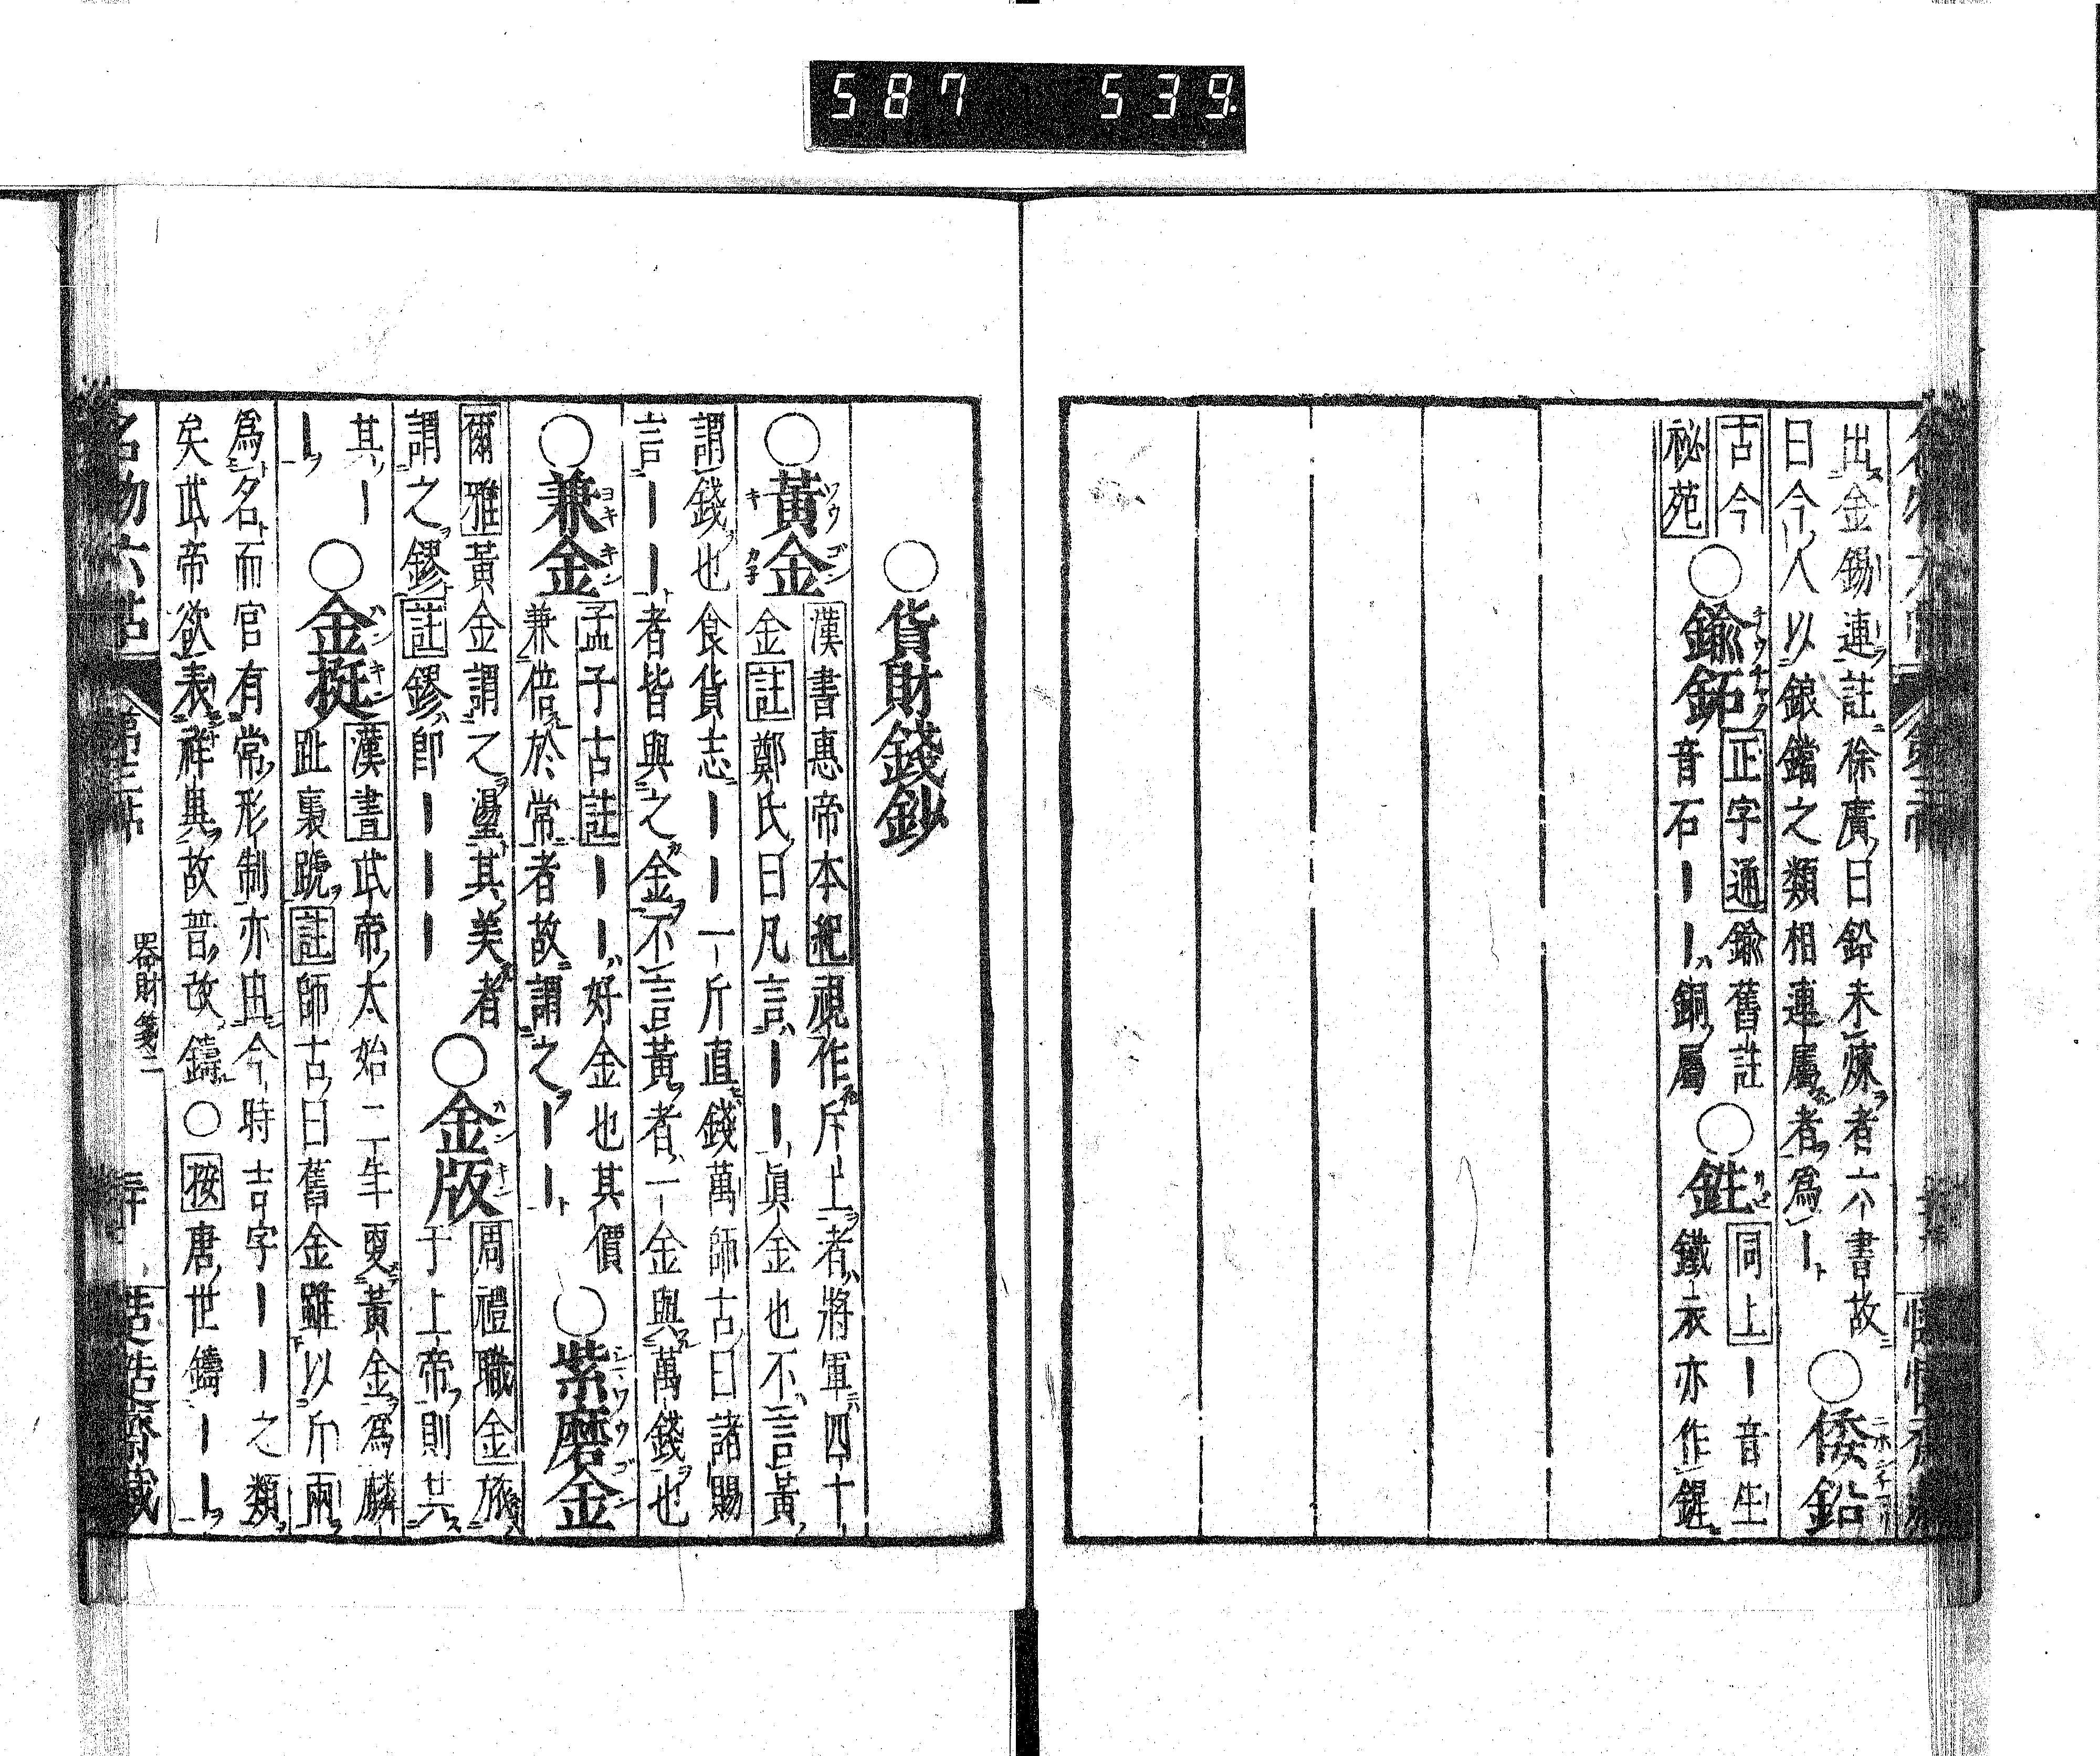 587 539
出金錫連註徐廣曰鉛未煉者六書故
曰今人以鋃鐺之類相連屬者爲｜
○倭鉛
古今
秘苑
○鍮鉐
正字通鍮舊註
音石｜｜銅屬
○鉎
同上｜音生
鐵衣亦作鍟
○貨財錢鈔
○黃金
漢書惠帝本紀視作斥上者將軍四十
金註鄭氏曰凡言｜｜眞金也不言黃
謂錢也食貨志｜｜一斤直錢萬師古曰諸賜
言｜｜者皆與之金不言黃者一金與萬錢也
○兼金
孟子古註｜｜好金也其價
兼倍於常者故謂之｜｜
○紫磨金
爾雅黃金謂之璗其美者
謂之鏐註鏐卽｜｜｜
○金版
周禮職金旅
于上帝則共
其｜
｜
○金挺
漢書武帝太始二年更黃金爲麟
趾褭蹏註師古曰舊金雖以斤兩
爲名而官有常形制亦由今時吉字｜｜之類
矣武帝欲表祥典故普改鑄○按唐世鑄｜｜
名物六帖
第三帖
器財箋二